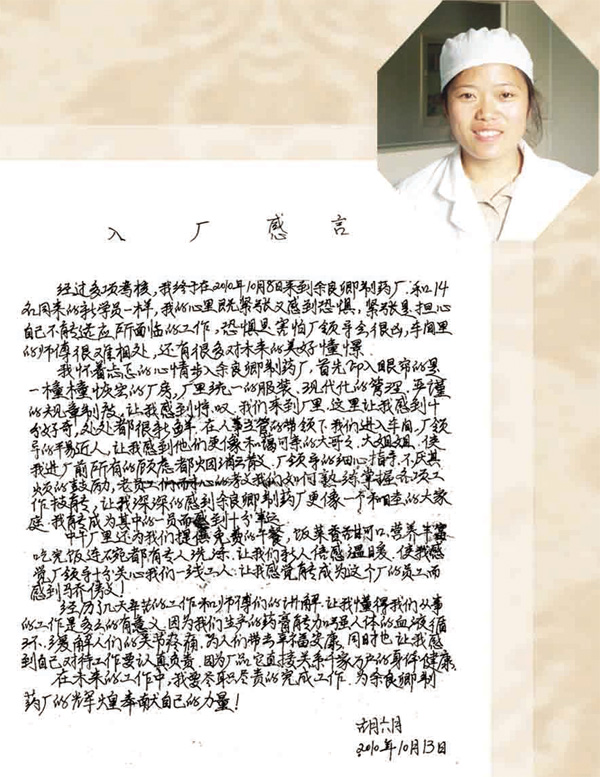 入厂感言
经过多项考核,我终于在2010年10月8日来到余良卿制药厂.和14
名同来的新学员一样,我的心里既紧张又感到恐惧,紧张是担心
自己不能适应所面临的工作,恐惧是害怕厂领导会很凶,车间里
的师傅很难相处,还有很多对未来的美好憧憬.
我怀着忐忑的心情步入余良卿制药厂,首先印入眼帘的是
一橦橦恢宏的厂房,厂里统一的服装、现代化的管理、严谨
的规章制度,让我感到惊叹.我们来到厂里,这里让我感到十
分好奇,处处都很新鲜.在人事主管的带领下我们进入车间,厂领
导的平易近人,让我感到他们更像和蔼可亲的大哥大、大姐姐,使
我进厂前所有的顾虑都烟消云散。厂领导的细心指导、不厌其
烦的鼓励,老员工们耐心的教我们如何熟练掌握各项工
作技能,让我深深的感到余良卿制药厂更像一个和睦的大家
庭.我能成为其中的一员而感到十分幸运.
中午厂里还为我们提供免费的午餐,饭菜香甜可口,营养丰富
吃完饭连碗都有专人洗涤.让我们新人倍感温暖,使我感
觉厂领导十分关心我们一线工人.让我感觉能成为这个厂的员工而
感到骄傲!
经历了几天车间的工作和师傅们的讲解.让我懂得我们从事
的工作是多么的有意义.因为我们生产的药膏能加强人体的血液循
环、缓解人们的关节疼痛.为人们带去幸福安康.同时也让我感
到自己对待工作要认真负责.因为产品它直接关系千家万户的身体健康.
在未来的工作中,我要尽职尽责的完成工作.为余良卿制
药厂的辉煌奉献自己的力量!
胡六月
2010年10月13日